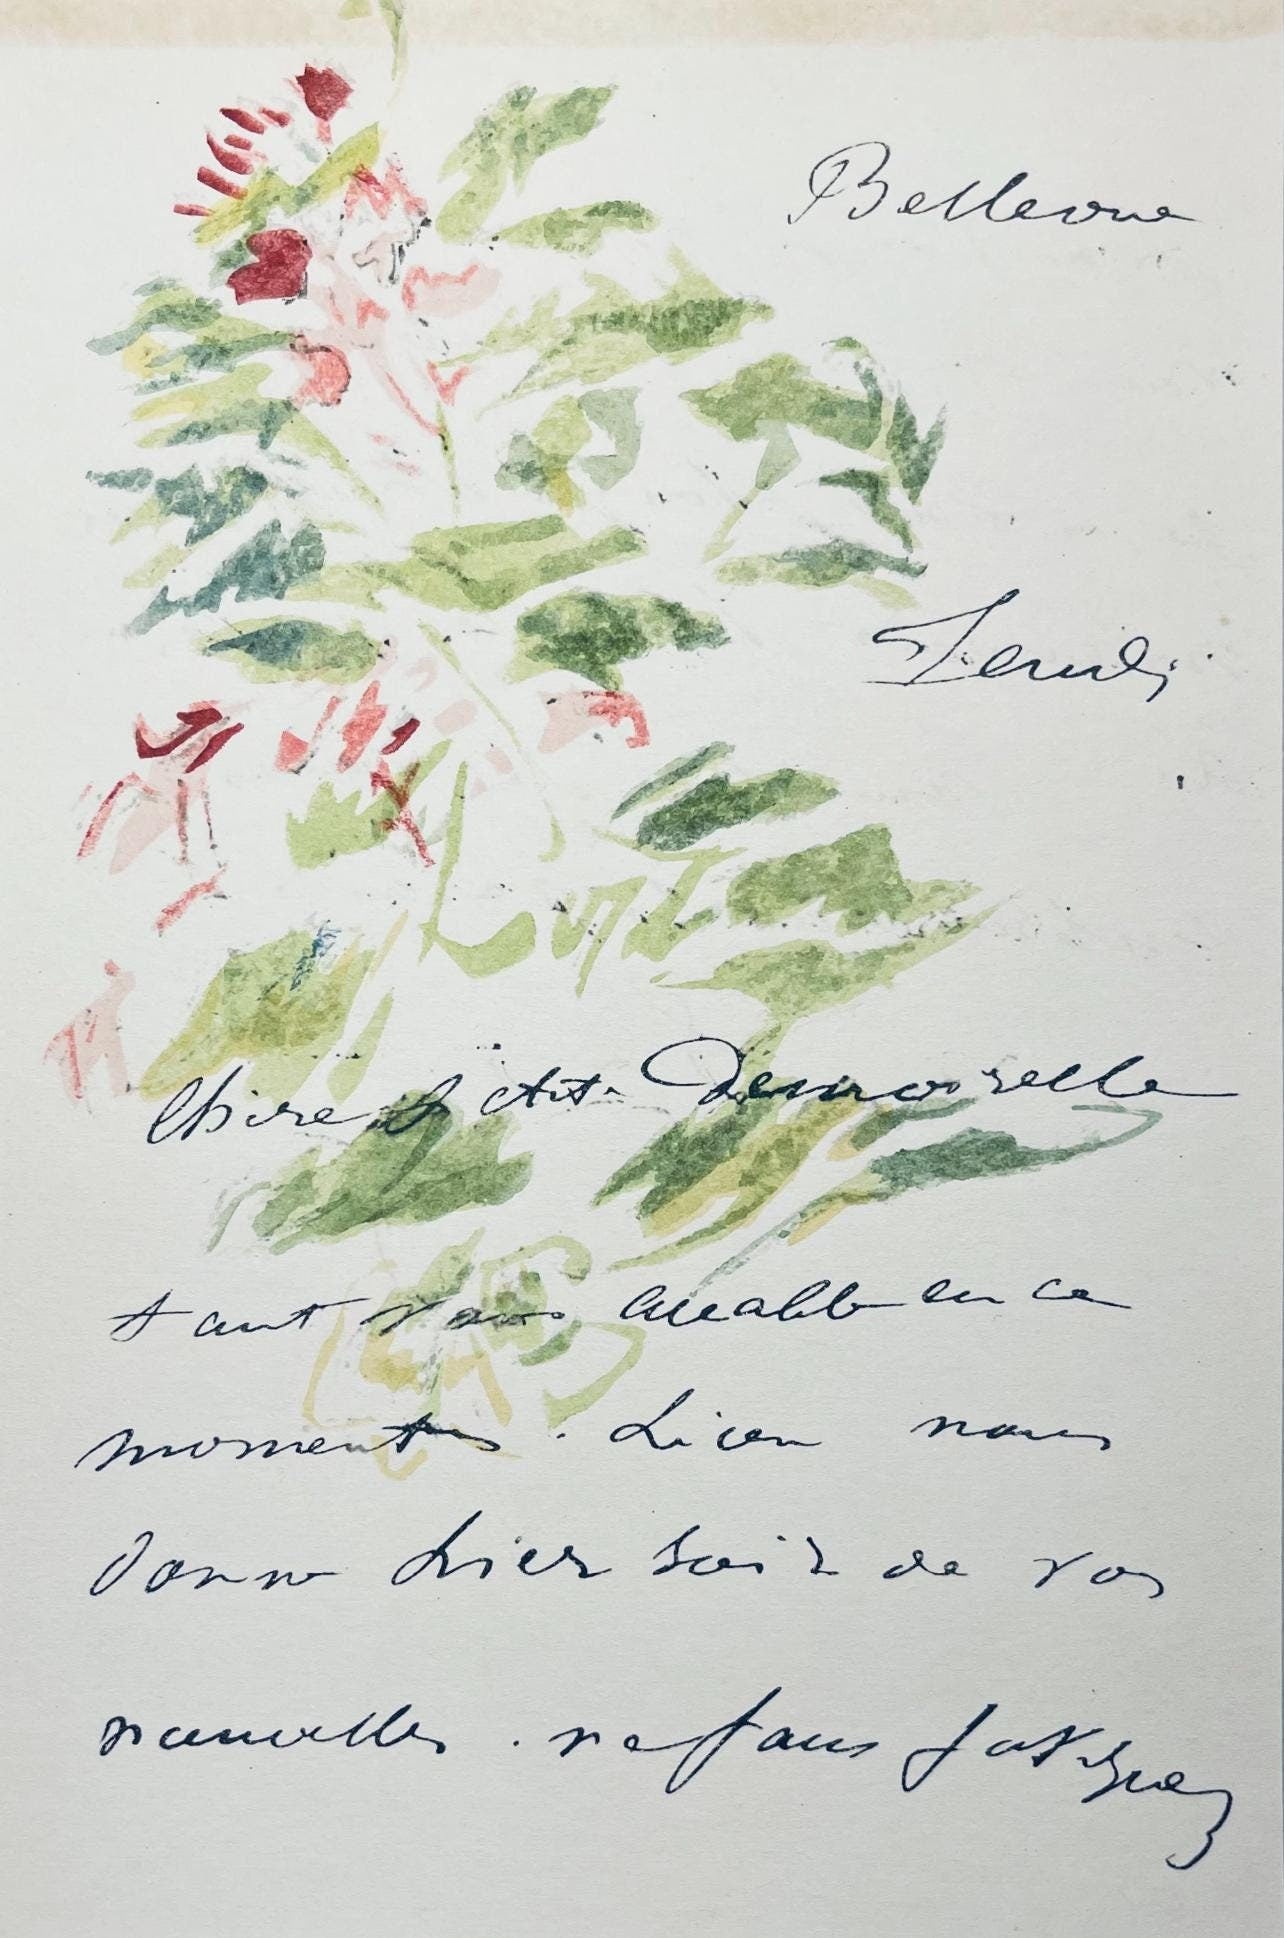 Bellevue
Jeudi
Chère petite Demoiselle
tant vous accable en ce
moment. Léon nous
donne hier soir de vos
nouvelles. ne vous fatiguez